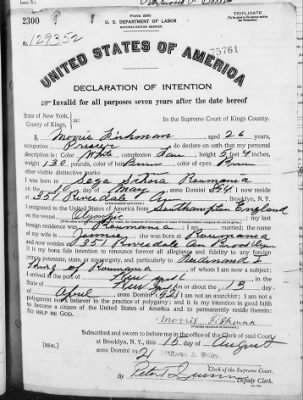 2300
Form 2203
U. S. DEPARTMENT OF LABOR
NATURALIZATION SERVICE
TRIPLICATE
No. 129352
75761
UNITED STATES OF AMERICA
DECLARATION OF INTENTION
Invalid for all purposes seven years after the date hereof
State of New York,
County of Kings,
In the Supreme Court of Kings County.
I, Morris Fishman, aged 26 years,
occupation Presser, do declare on oath that my personal
description is: Color White, complexion Fair, height 5 feet 4 inches,
weight 130 pounds, color of hair Brown, color of eyes Brown
other visible distinctive marks
I was born in Roumania
on the day of May, anno Domini 1894; I now reside
at 351 Riverdale Av, Brooklyn, N. Y.
I emigrated to the United States of America from Southampton England
on the vessel Olympic; my last
foreign residence was Roumania; I am married; the name
of my wife is; she was born at Roumania
and now resides at 351 Riverdale Av Brooklyn
It is my bona fide intention to renounce forever all allegiance and fidelity to any foreign
prince, potentate, state, or sovereignty, and particularly to Ferdinand I
King of Roumania, of whom I am now a subject;
I arrived at the port of New York, in the
State of New York, on or about the 13 day
of April, anno Domini 1921; I am not an anarchist; I am not a
polygamist nor a believer in the practice of polygamy; and it is my intention in good faith
to become a citizen of the United States of America and to permanently reside therein:
SO HELP ME GOD.
Morris Fishman
Subscribed and sworn to before me in the office of the Clerk of said Court
at Brooklyn, N. Y., this 15 day of August
anno Domini 1921
[SEAL]
Clerk of the Supreme Court.
By Peter J., Deputy Clerk.